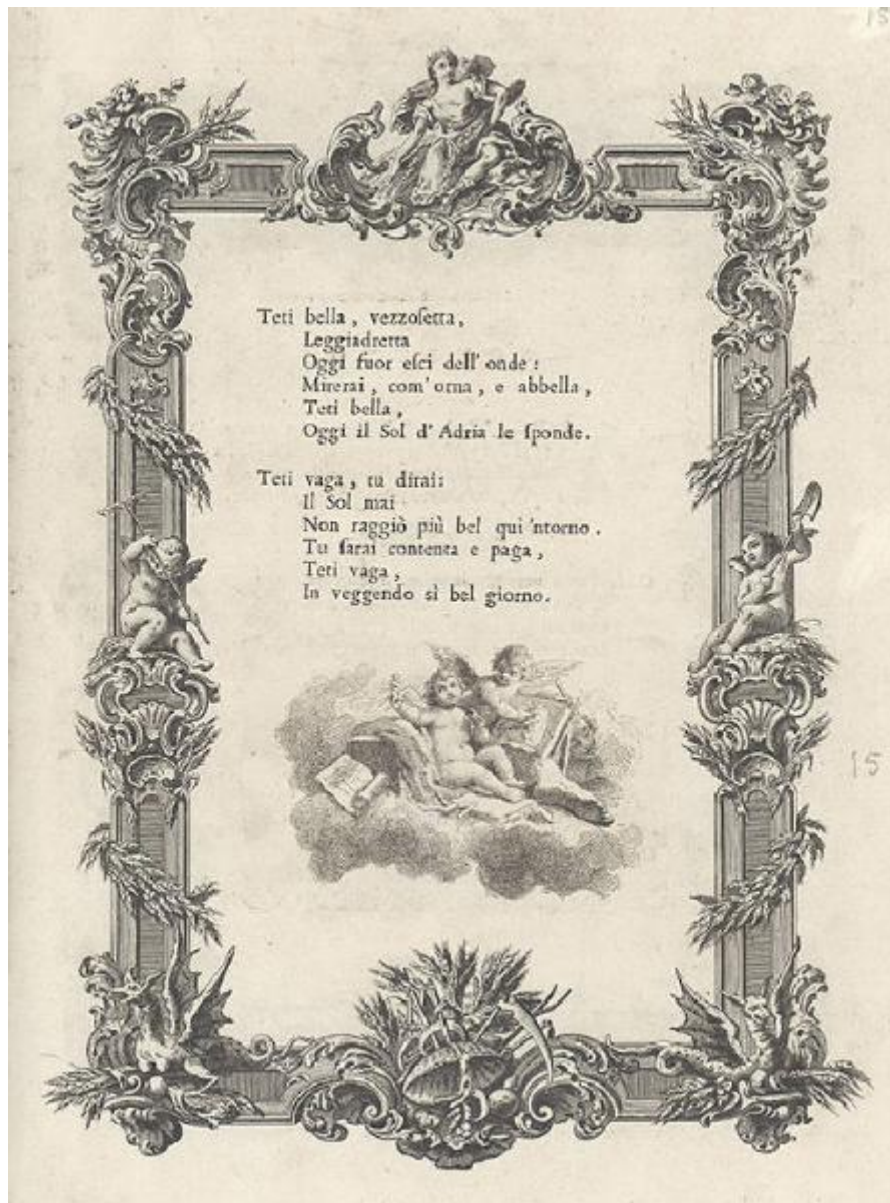 15
Teti bella, vezzoſetta,
Leggiadretta
Oggi fuor eſci dell' onde:
Mirerai, com' orna, e abbella,
Teti bella,
Oggi il Sol d' Adria le ſponde.
Teti vaga, tu dirai:
Il Sol mai
Non raggiò più bel qui 'ntorno.
Tu ſarai contenta e paga,
Teti vaga,
In veggendo sì bel giorno.
15